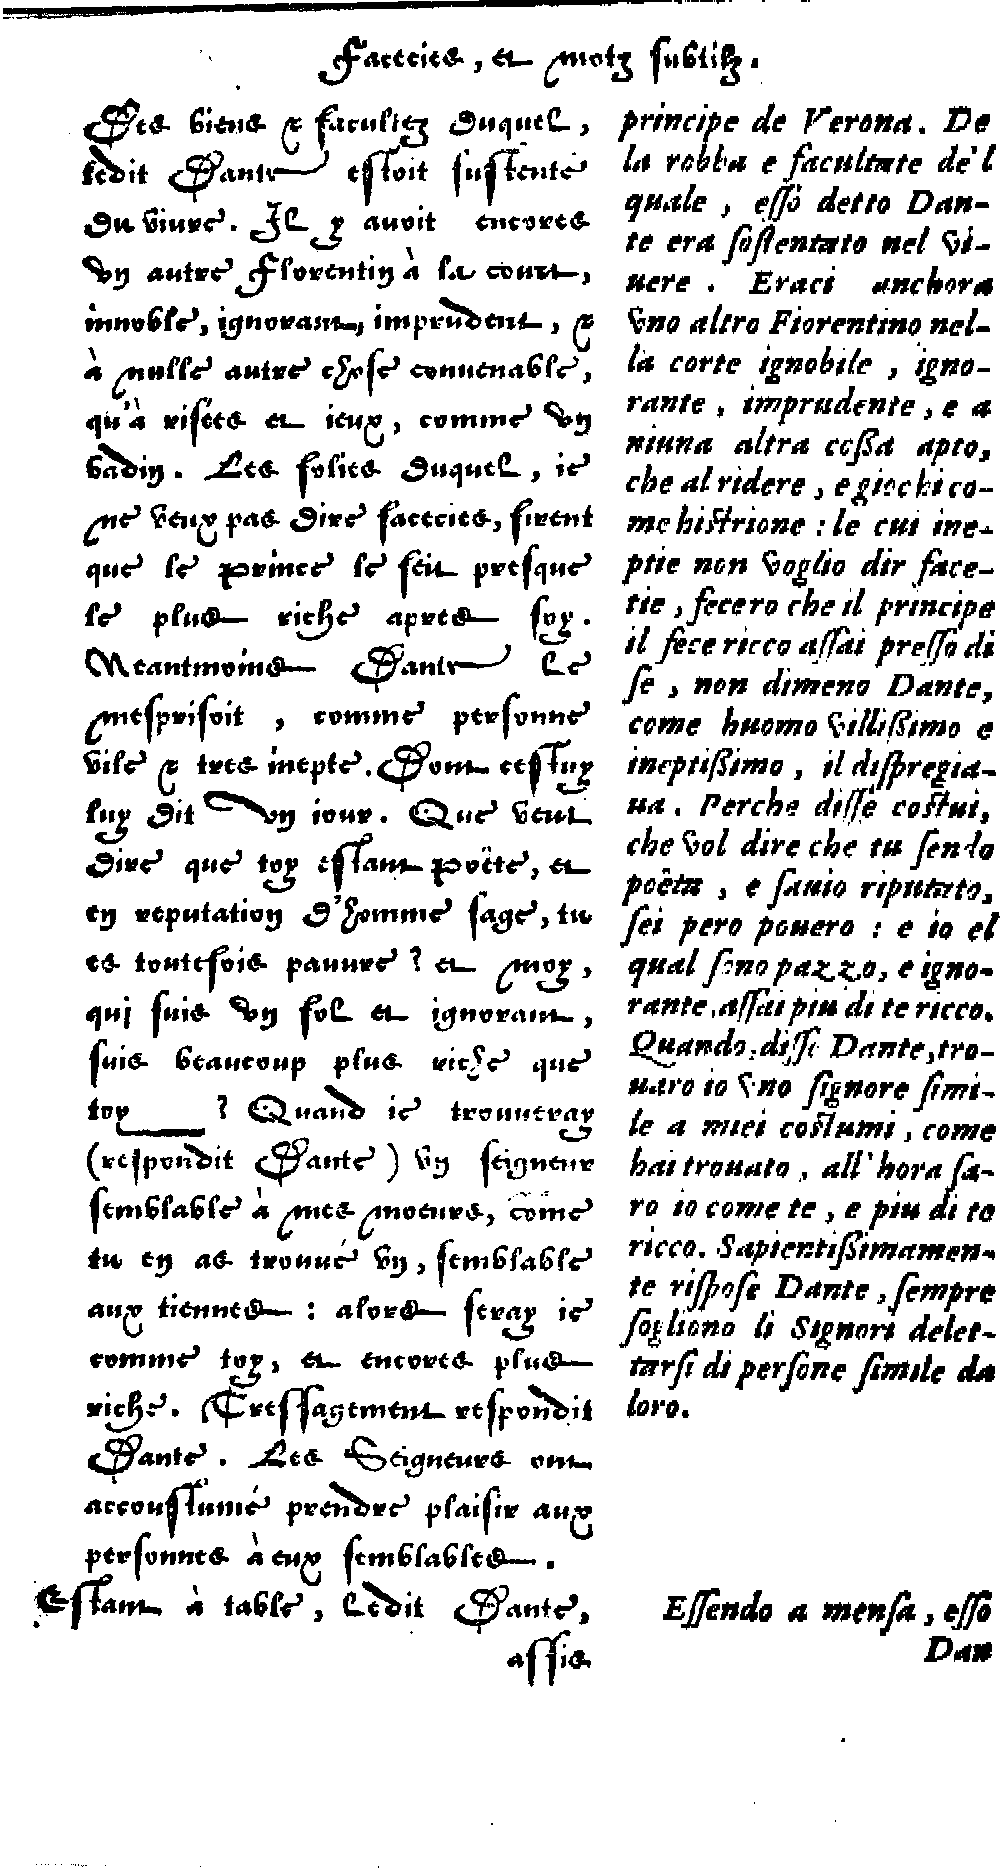 Facecies, et motz subtilz.
Des biens & facultez duquel,
ledit Dante estoit sustenté
du viure. Il y auoit encores
vn autre Florentin à la court,
innoble, ignorant, imprudent, &
à nulle autre chose conuenable,
qu'à risées et ieux, comme vn
badin. Les folies duquel, ie
ne veux pas dire facecies, firent
que le prince le feit presque
le plus riche apres soy.
Neantmoins Dante le
mesprisoit, comme personne
vile & tres inepte. Dont cestuy
luy dit vn iour. Que veut
dire que toy estant poëte, et
en reputation d'homme sage, tu
es toutesfois pauure? et moy,
qui suis vn fol et ignorant,
suis beaucoup plus riche que
toy? Quand ie trouueray
(respondit Dante) vn seigneur
semblable à mes moeurs, cõme
tu en as trouué vn, semblable
aux tiennes: alors seray ie
comme toy, et encores plus
riche. Tressagement respondit
Dante. Les Seigneurs ont
accoustumé prendre plaisir aux
personnes à eux semblables.
Estant à table, ledit Dante,
assis
principe de Verona. De
la robba e facultate de'l
quale, esso detto Dan-
te era sostentato nel vi-
uere. Eraci anchora
vno altro Fiorentino nel-
la corte ignobile, igno-
rante, imprudente, e a
niuna altra cossa apto,
che al ridere, e giochi co-
me histrione: le cui ine-
ptie non voglio dir face-
tie, fecero che il principe
il fece ricco assai presso di
se, non dimeno Dante,
come huomo villissimo e
ineptissimo, il dispregia-
ua. Perche disse costui,
che vol dire che tu sendo
poëta, e sauio riputato,
sei pero pouero: e io el
qual sono pazzo, e igno-
rante, assai piu di te ricco.
Quando, disse Dante, tro-
uaro io vno signore simi-
le a miei costumi, come
hai trouato, all'hora sa-
ro io come te, e piu di to
ricco. Sapientissimamen-
te rispose Dante, sempre
sogliono li Signori delet-
tarsi di persone simile da
loro.
Essendo a mensa, esso
Dan